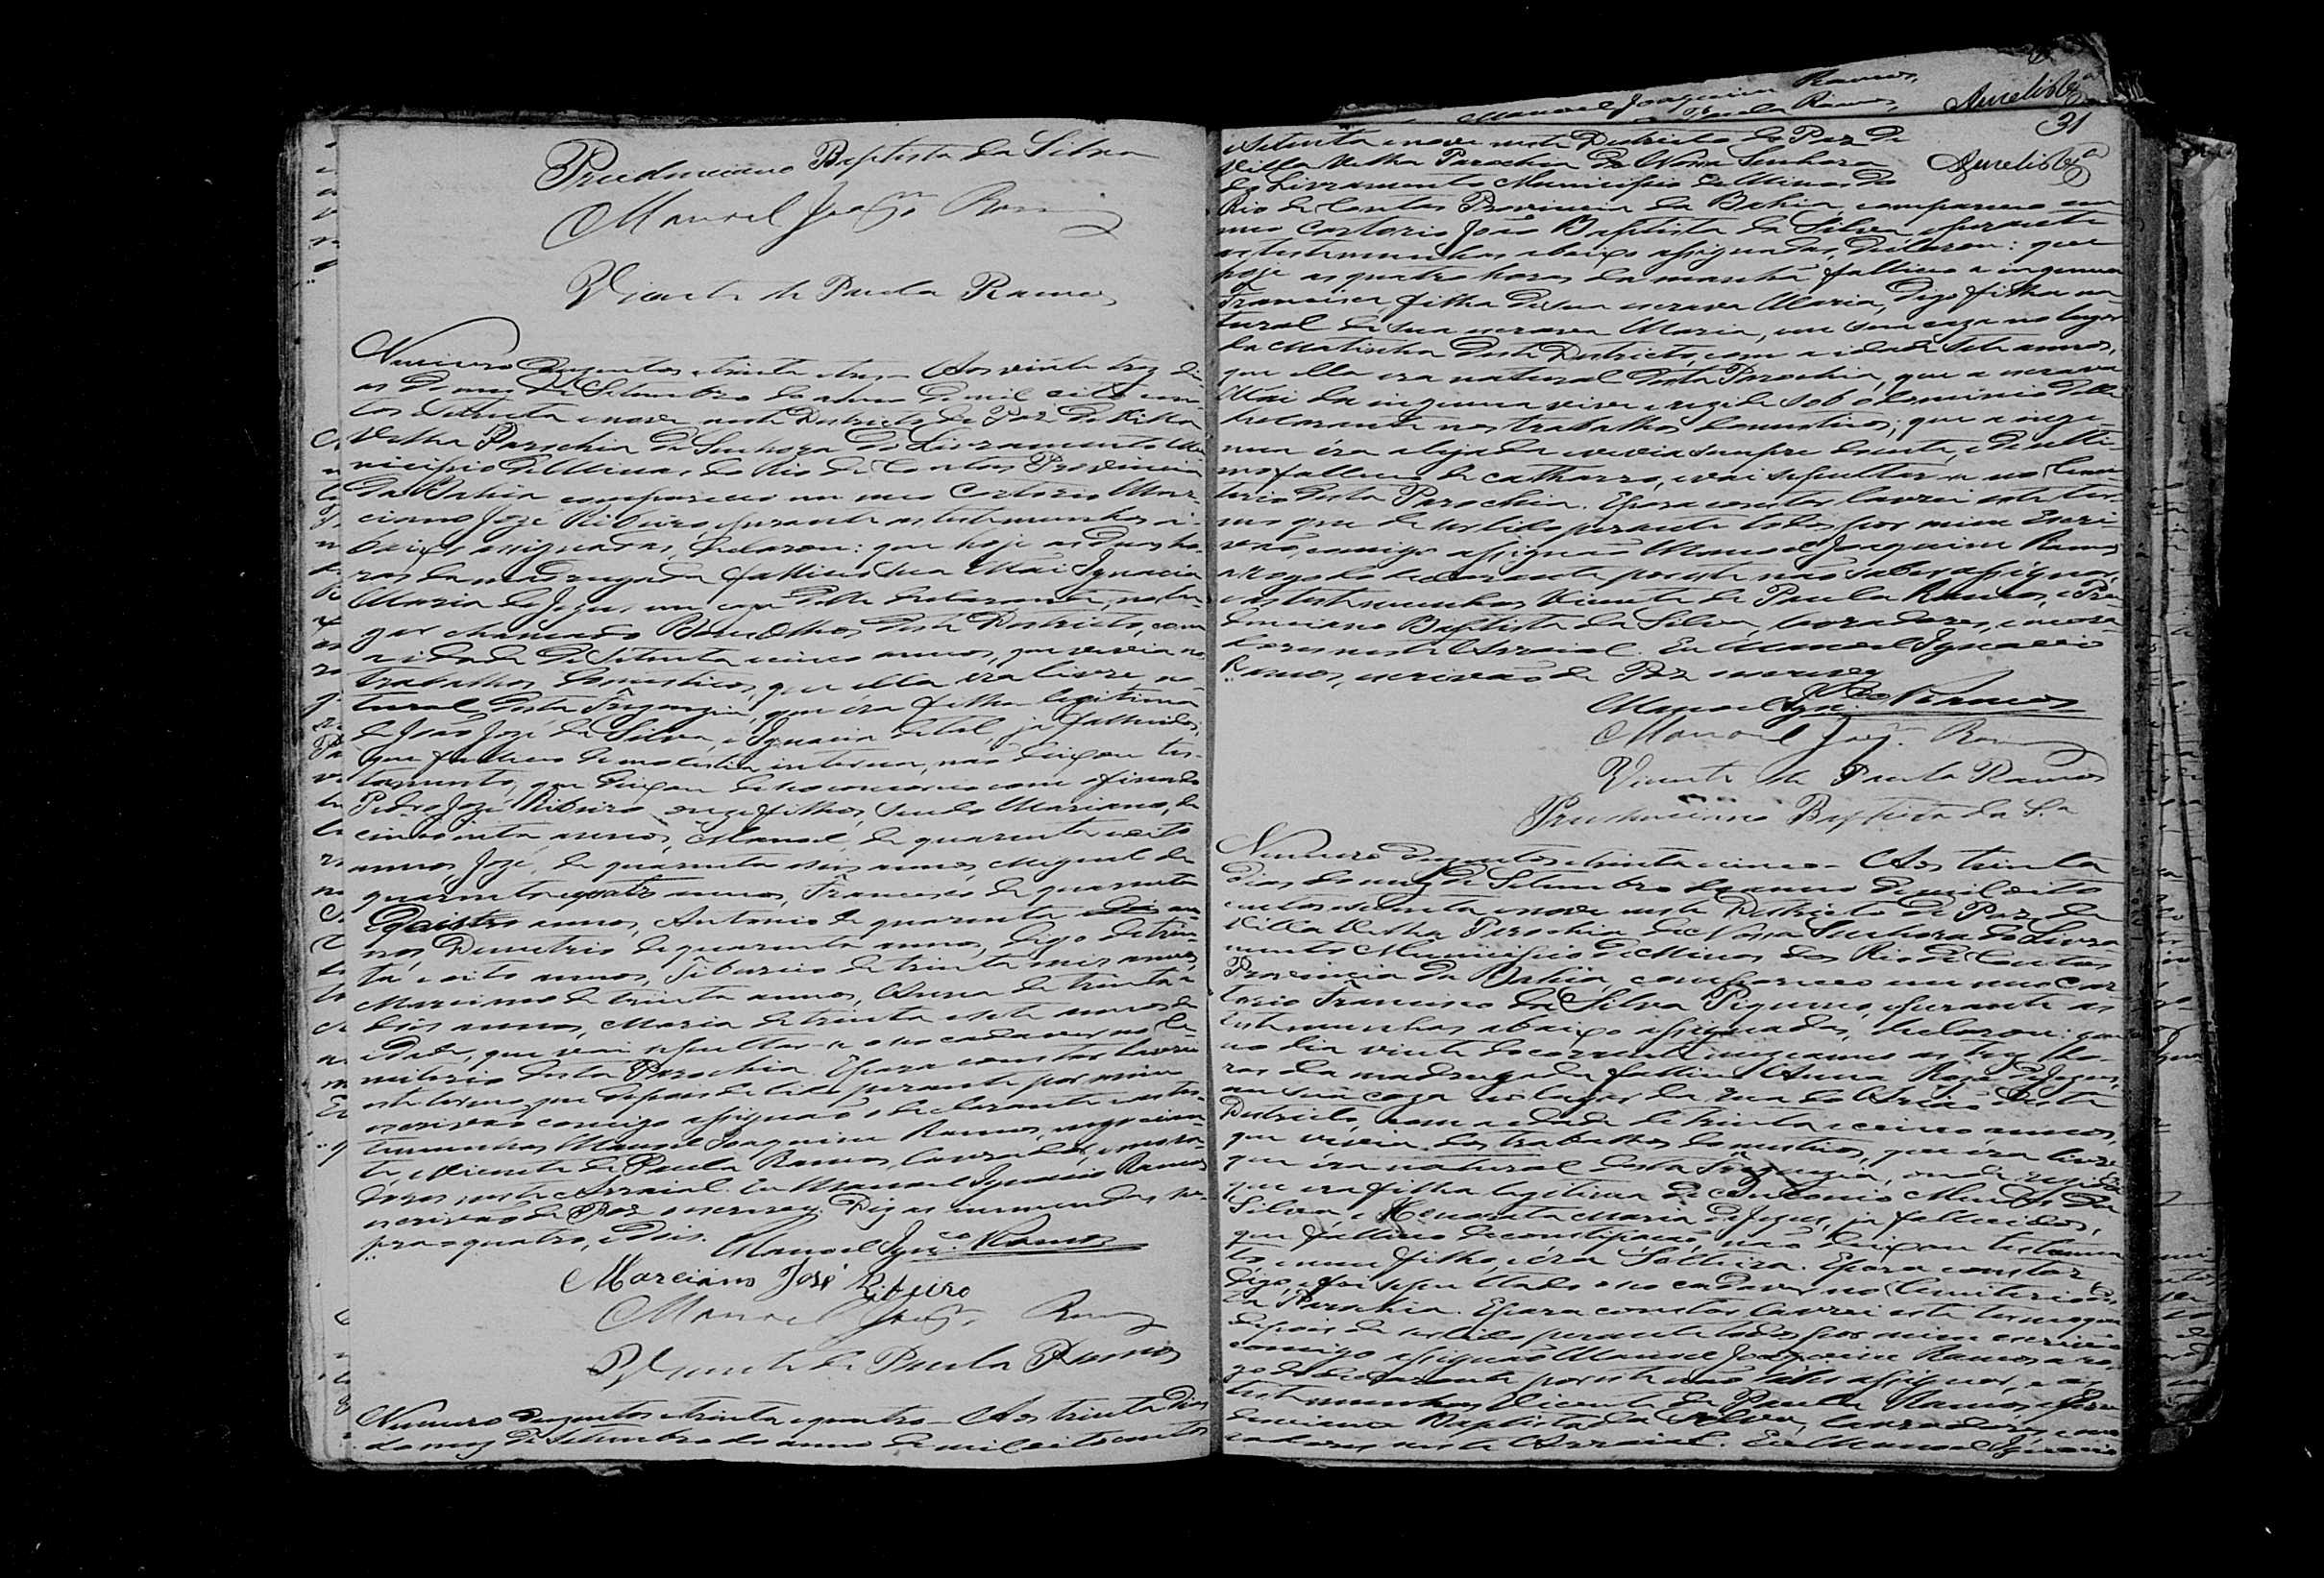 Prudenciano Baptista da Silva
Manoel Joaqm Ramos
Vicente de Paula Ramos
Numero duzentos e trinta e tres - Aos vinte trez di-
as do mez de Setembro do anno de mil oito cen-
tos e setenta e nove neste Districto de Paz da Villa
Velha Parochia da Senhora do Livramento Mu-
nicipio de Minas do Rio de Contas Provincia
da Bahia compareceo em meo Cartorio Mar-
ciano José Ribeiro, e perante as testemunhas a-
baixo assignadas, declarou: que hoje as duas ho-
ras da madrugada falleceo sua Mãi Ignacia
Maria de Jezus, em caza delle declarante, no lu-
gar chamado deste Districto, com
a idade de setenta e cinco annos, que vivia no
trabalhos domesticos, que ella era livre, na-
tural desta Freguezia, que éra filha legitima
de João José da Silva, e Ignacia de tal, ja fallecidos,
que falleceo de molestia interna, não deixou tes-
tamento, que deixou de seo concorcio com o finado
Pedro José Ribeiro onze filhos, sendo Marciano, de
cincoenta annos, Manoel, de quarenta e oito
annos, José, de quarenta e seis annos, Miguel de
quarenta e quatro annos, Francisco de quarenta
annos, Antonio de quarenta e dois an-
nos, Demetrio de quarenta annos, digo de trin-
ta e oito annos, Tiburcio de trinta e seis annos,
de trinta annos, Anna de trinta e
dois annos, Maria de trinta e sete annos de
idade, que vai sepultar-se o seo cadaver no Ce-
miterio desta Parochia. E para constar lavrei
este termo que depois de lido perante por mim
escrivão comigo assignão o declarante e as tes-
temunhas Manoel Joaquim Ramos, negocian-
te, e Vicente de Paula Ramos, lavrador, e mora-
dores neste Arraial. Eu Manoel Ignacio Ramos
escrivão de Paz o escrevy. Diz as emendas su-
pra quatro, e dois. Manoel Igncº. Ramos
Marciano José Ribeiro
Manoel Joaqm Ramos
Vicente de Paula Ramos
Numero duzentos e trinta e quatro - Aos trinta dias
do mez de Setembro do anno de mil oito centos
31
e setenta e nove neste Districto de Paz da
Villa Velha Parochia de Nossa Senhora
do Livramento Municipio de Minas do
Rio de Contas Provincia da Bahia, compareceo em
meo Cartorio João Baptista da Silva e perante
as testemunhas abaixo assignadas, declarou: que
hoje as quatro horas da manhã falleceo a ingenua
Francisca, filha de sua escrava Maria, digo filha na-
tural de sua escrava Maria, em sua caza no lugar
da deste Districto, com a idade sete annos,
que ella era natural desta Parochia, que a escrava
Mãi da ingenua vive e rezide sob o dominio delle
declarante nos trabalhos domesticos; que a inge-
nua éra aleijada e vevia sempre doente, e de ulti-
mo falleceo de catharro, e vai sepultar-se no Cemi-
terio desta Parochia. E para constar lavrei este ter-
mo que de ser lido perante todos por mim Escri-
vão, comigo assignão Manoel Joaquim Ramos
a rogo do declarante por este não saber assignar,
e as testemunhas Vicente de Paula Ramos, e Pru-
denciano Baptista da Silva, lavradores, e mora-
dores neste Arraial. Eu Manoel Ignacio
Ramos, escrivão de Paz o escrevy
Manoel Igncº. Ramos
Manoel Joaqm. Ramos
Vicente de Paula Ramos
Prudenciano Baptista da Sa
Numero duzentos e trinta e cinco - Aos trinta
dias do mez de Setembro do anno de mil oito
centos e setenta e nove neste Districto de Paz da
Villa Velha Parochia de Nossa Senhora do Livra
mento Municipio de Minas do Rio de Contas
Provincia da Bahia, compareceo em meo Car-
torio Francisco da Silva Piqueno, e perante as
testemunhas abaixo assignadas, declarou: que
no dia vinte do corrente mez e anno as trez ho-
ras da madrugada falleceo Anna Roza de Jezus,
em sua caza no lugar da rua do deste
Districto, com a idade de trinta e cinco annos,
que vevia dos trabalhos domesticos, que éra livre
que éra natural desta Freguezia, onde rezidia
que era filha legitima de Antonio Mendes da
Silva e Maria de Jezus, ja fallecidos,
que falleceo de constipação, não deixou testamen-
to e nem filho, e éra Solteira. E para constar
digo, e foi sepultado o seo cadaver no Cemiterio des-
ta Parochia. E para constar lavrei este termo que
depois de ser lido perante todos por mim escrivão
comigo assignão Manoel Joaquim Ramos a ro-
go do declarante por este não saber assignar, e as
testemunhas Vicente de Paula Ramos, e Pru-
denciano Baptista da Silva, lavradores, e mo-
radores neste Arraial. Eu Manoel Ignacio